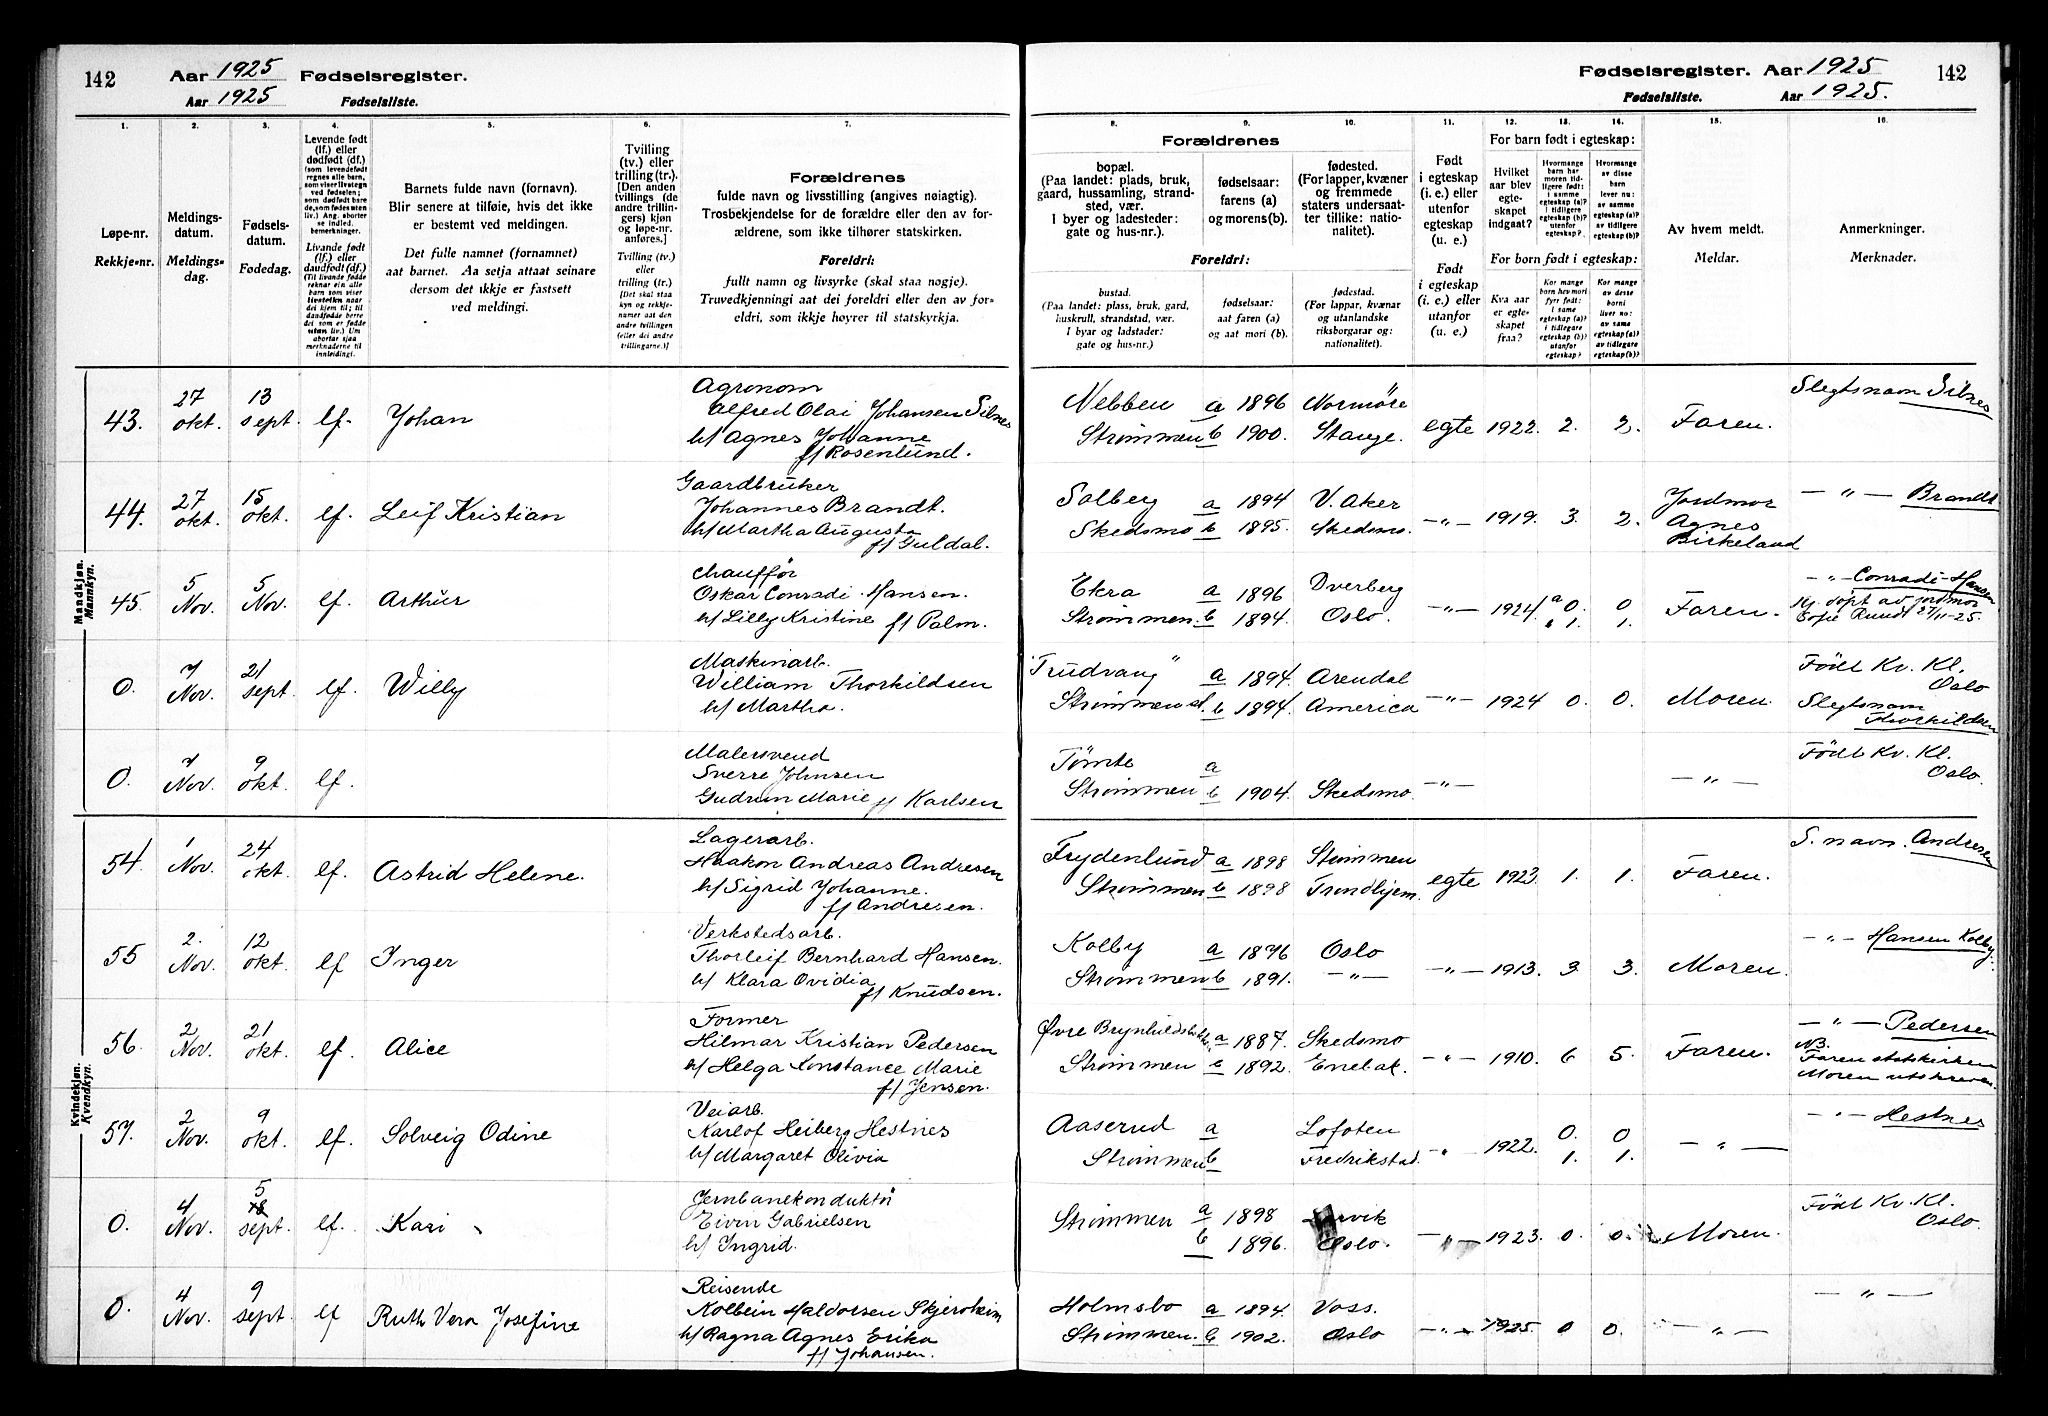 142 Aar 1925 Fødselsregister.
Aar 1925 Fødselsliste.
Fødselsregister. Aar 1925 142
Fødselsliste. Aar 1925.
1.
Løpe-nr.
Rekkje-nr.
2.
Meldings-
datum.
Meldings-
dag.
3.
Fødsels-
datum.
Fødedag.
4.
Levende født
(lf.) eller
dødfødt (df.)
5.
Barnets fulde navn (fornavn).
Blir senere at tilføie, hvis det ikke
er bestemt ved meldingen.
Det fulle namnet (fornamnet)
aat barnet. Aa setja attaat seinare
dersom det ikkje er fastsett
ved meldingi.
6.
Tvilling
(tv.) eller
trilling (tr.).
[Den anden
tvillings (de
andre trillin-
gers) kjøn
og løpe-nr.
anføres.]
Tvilling (tv.)
eller
trilling (tr.)
7.
Forældrenes
fulde navn og livsstilling (angives nøiagtig).
Trosbekjendelse for de forældre eller den av for-
ældrene, som ikke tilhører statskirken.
Foreldri:
fullt namn og livsyrke (skal staa nøgje).
Truvedkjenningi aat dei foreldri eller den av for-
eldri, som ikkje høyrer til statskyrkja.
8. 9. 10.
Forældrenes
bopæl.
(Paa landet: plads, bruk,
gaard, hussamling, strand-
sted, vær.
I byer og ladesteder:
gate og hus-nr.).
fødselsaar:
farens (a)
og morens (b).
fødested.
(For lapper, kvæner
og fremmede
staters undersaat-
ter tillike: natio-
nalitet).
Foreldri:
bustad.
(Paa landet: plass, bruk, gard,
huskrull, strandstad, vær.
I byar og ladstader:
gate og hus-nr.)
fødselsaar:
aat faren (a)
og aat mori (b).
fødestad.
(For lappar, kvænar
og utanlandske
riksborgarar og:
nationalitet).
11.
Født
i egteskap
(i. e.) eller
utenfor
egteskap
(u. e.)
Født
i egteskap
(i. e.) eller
utanfor
(u. e.)
12. 13. 14.
For barn født i egteskap:
Hvilket
aar blev
egte-
skapet
indgaat?
For born født i egteskap:
Kva aar
er egte-
skapet
fraa?
15.
Av hvem meldt.
Meldar.
16.
Anmerkninger.
Merknader.
Mandkjøn.
Mannkyn.
43. 27 okt. 13 sept. lf. Johan
Agronom
Alfred Olai Johansen Silnes
h/ Agnes Johanne
f/ Rosenlund.
Nebben a 1896 Normöre
Strømmen b 1900. Stange. egte 1922. 2. 2. Faren.
Slegtsnavn Silnes
44. 27 okt. 15 okt. lf. Leif Kristian
Gaardbruker
Johannes Brandt.
h/ Martha Augusta
f/ Guldal.
Solberg a 1894 V. Aker
Skedsmo b 1895. Skedsmo. —„— 1919. 3. 2. Jordmor
Agnes
Birkeland
— „ — Brandt
45. 5 Nov. 5 Nov. lf. Arthur
Chauffør
Oskar Conradi-Hansen.
h/ Lilly Kristine f/ Palm.
Ekra a 1896 Dverberg
Strømmen. b 1894. Oslo. —„— 1924. a 0. 0
1. 1. Faren.
—„— Conradi-Hansen
Hj. döpt av jordmor
27/11-25.
0. 7 Nov. 21 sept. lf. Willy
Maskinarb.
William Thorkildsen
h/ Martha.
"Trudvang" a 1894. Arendal
Strømmen st. b 1894. America —„— 1924 0. 0. Moren.
Födt Kv. Kl.
Oslo
Slegtsnavn
Thorkildsen
0. 7 Nov. 9 okt. lf.
Malersvend
Sverre Johnsen
Gudrun Marie f/ Karlsen
Tömte a
Strømmen b 1904. Skedsmo. —„— — „ —
Födt Kv. Kl.
Oslo.
Kvindekjøn.
Kvendkyn.
54. 1 Nov. 24 okt. lf. Astrid Helene.
Lagerarb.
Haakon Andreas Andresen
h/ Sigrid Johanne.
f/ Andresen.
Frydenlund a 1898 Strömmen
Strømmen b 1898 Trondhjem. egte 1923. 1. 1. Faren.
S. navn. Andresen
55 2. Nov. 12 okt. lf Inger
Verkstedsarb.
Thorleif Bernhard Hansen.
h/ Klara Ovidia
f/ Knudsen.
Kolby a 1876 Oslo
Strømmen b 1891. —„— —„— 1913. 3. 3. Moren.
—„— Hansen Kolby.
56. 2 Nov. 21 okt. lf. Alice
Former
Hilmar Kristian Pedersen
h/ Helga Konstance Marie
f/ Jensen.
Øvre a 1887. Skedsmo
Strømmen b 1892. Enebak. —„— 1910. 6 5. Faren.
—„— Pedersen
NB.
Faren statskirken
Moren utskreven.
57. 2 Nov. 9 okt. lf. Solveig Odine
Veiarb.
Karlof Heiberg Hestnes
h/ Margaret Olivia
Aaserud a Lofoten
Strømmen b Fredrikstad. —„— 1922. 0. 0
1. 1. — „ —
—„— Hestnes
0. 4 Nov. 5 sept. lf. Kari
Jernbanekonduktør
Eivin Gabrielsen
h/ Ingrid.
Strømmen a 1898
b 1896. Oslo. —„— 1923. 0. 0. Moren.
Födt Kv. Kl.
Oslo.
0. 4 Nov. 9 sept. lf Ruth Vera Josefine
Reisende
Kolbein Haldorsen Skjeroheim
h/ Ragna Agnes Erika
f/ Johansen.
Holmsbo a 1894. Voss.
Strømmen. b 1902. Oslo —„— 1925. 0 0. —„—
— „ —